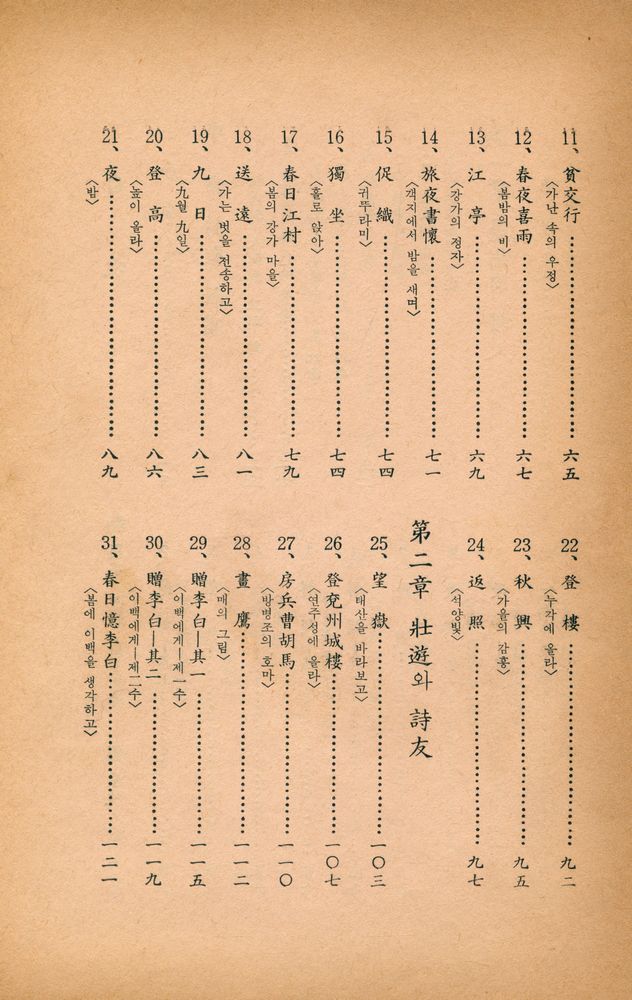 11、貧交行……六五
〈가난 속의 우정〉
12、春夜喜雨……六七
〈봄밤의 비〉
13、江亭……六九
〈강가의 정자〉
14、旅夜書懷……七一
〈객지에서 밤을 새며〉
15、促織……七四
〈귀뚜라미〉
16、獨坐……七四
〈홀로 앉아〉
17、春日江村……七九
〈봄의 강가 마을〉
18、送遠……八一
〈가는 벗을 전송하고〉
19、九日……八三
〈九월 九일〉
20、登高……八六
〈높이 올라〉
21、夜……八九
〈밤〉
22、登樓……九二
〈누각에 올라〉
23、秋興……九五
〈가을의 감흥〉
24、返照……九七
〈석양빛〉
第二章 壯遊와 詩友
25、望嶽……一〇三
〈태산을 바라보고〉
26、登兗州城樓……一〇七
〈연주성에 올라〉
27、房兵曹胡馬……一一〇
〈방병조의 호마〉
28、畫鷹……一一二
〈매의 그림〉
29、贈李白―其一……一一五
〈이백에게―제一수〉
30、贈李白―其二……一一九
〈이백에게―제二수〉
31、春日憶李白……一二一
〈봄에 이백을 생각하고〉